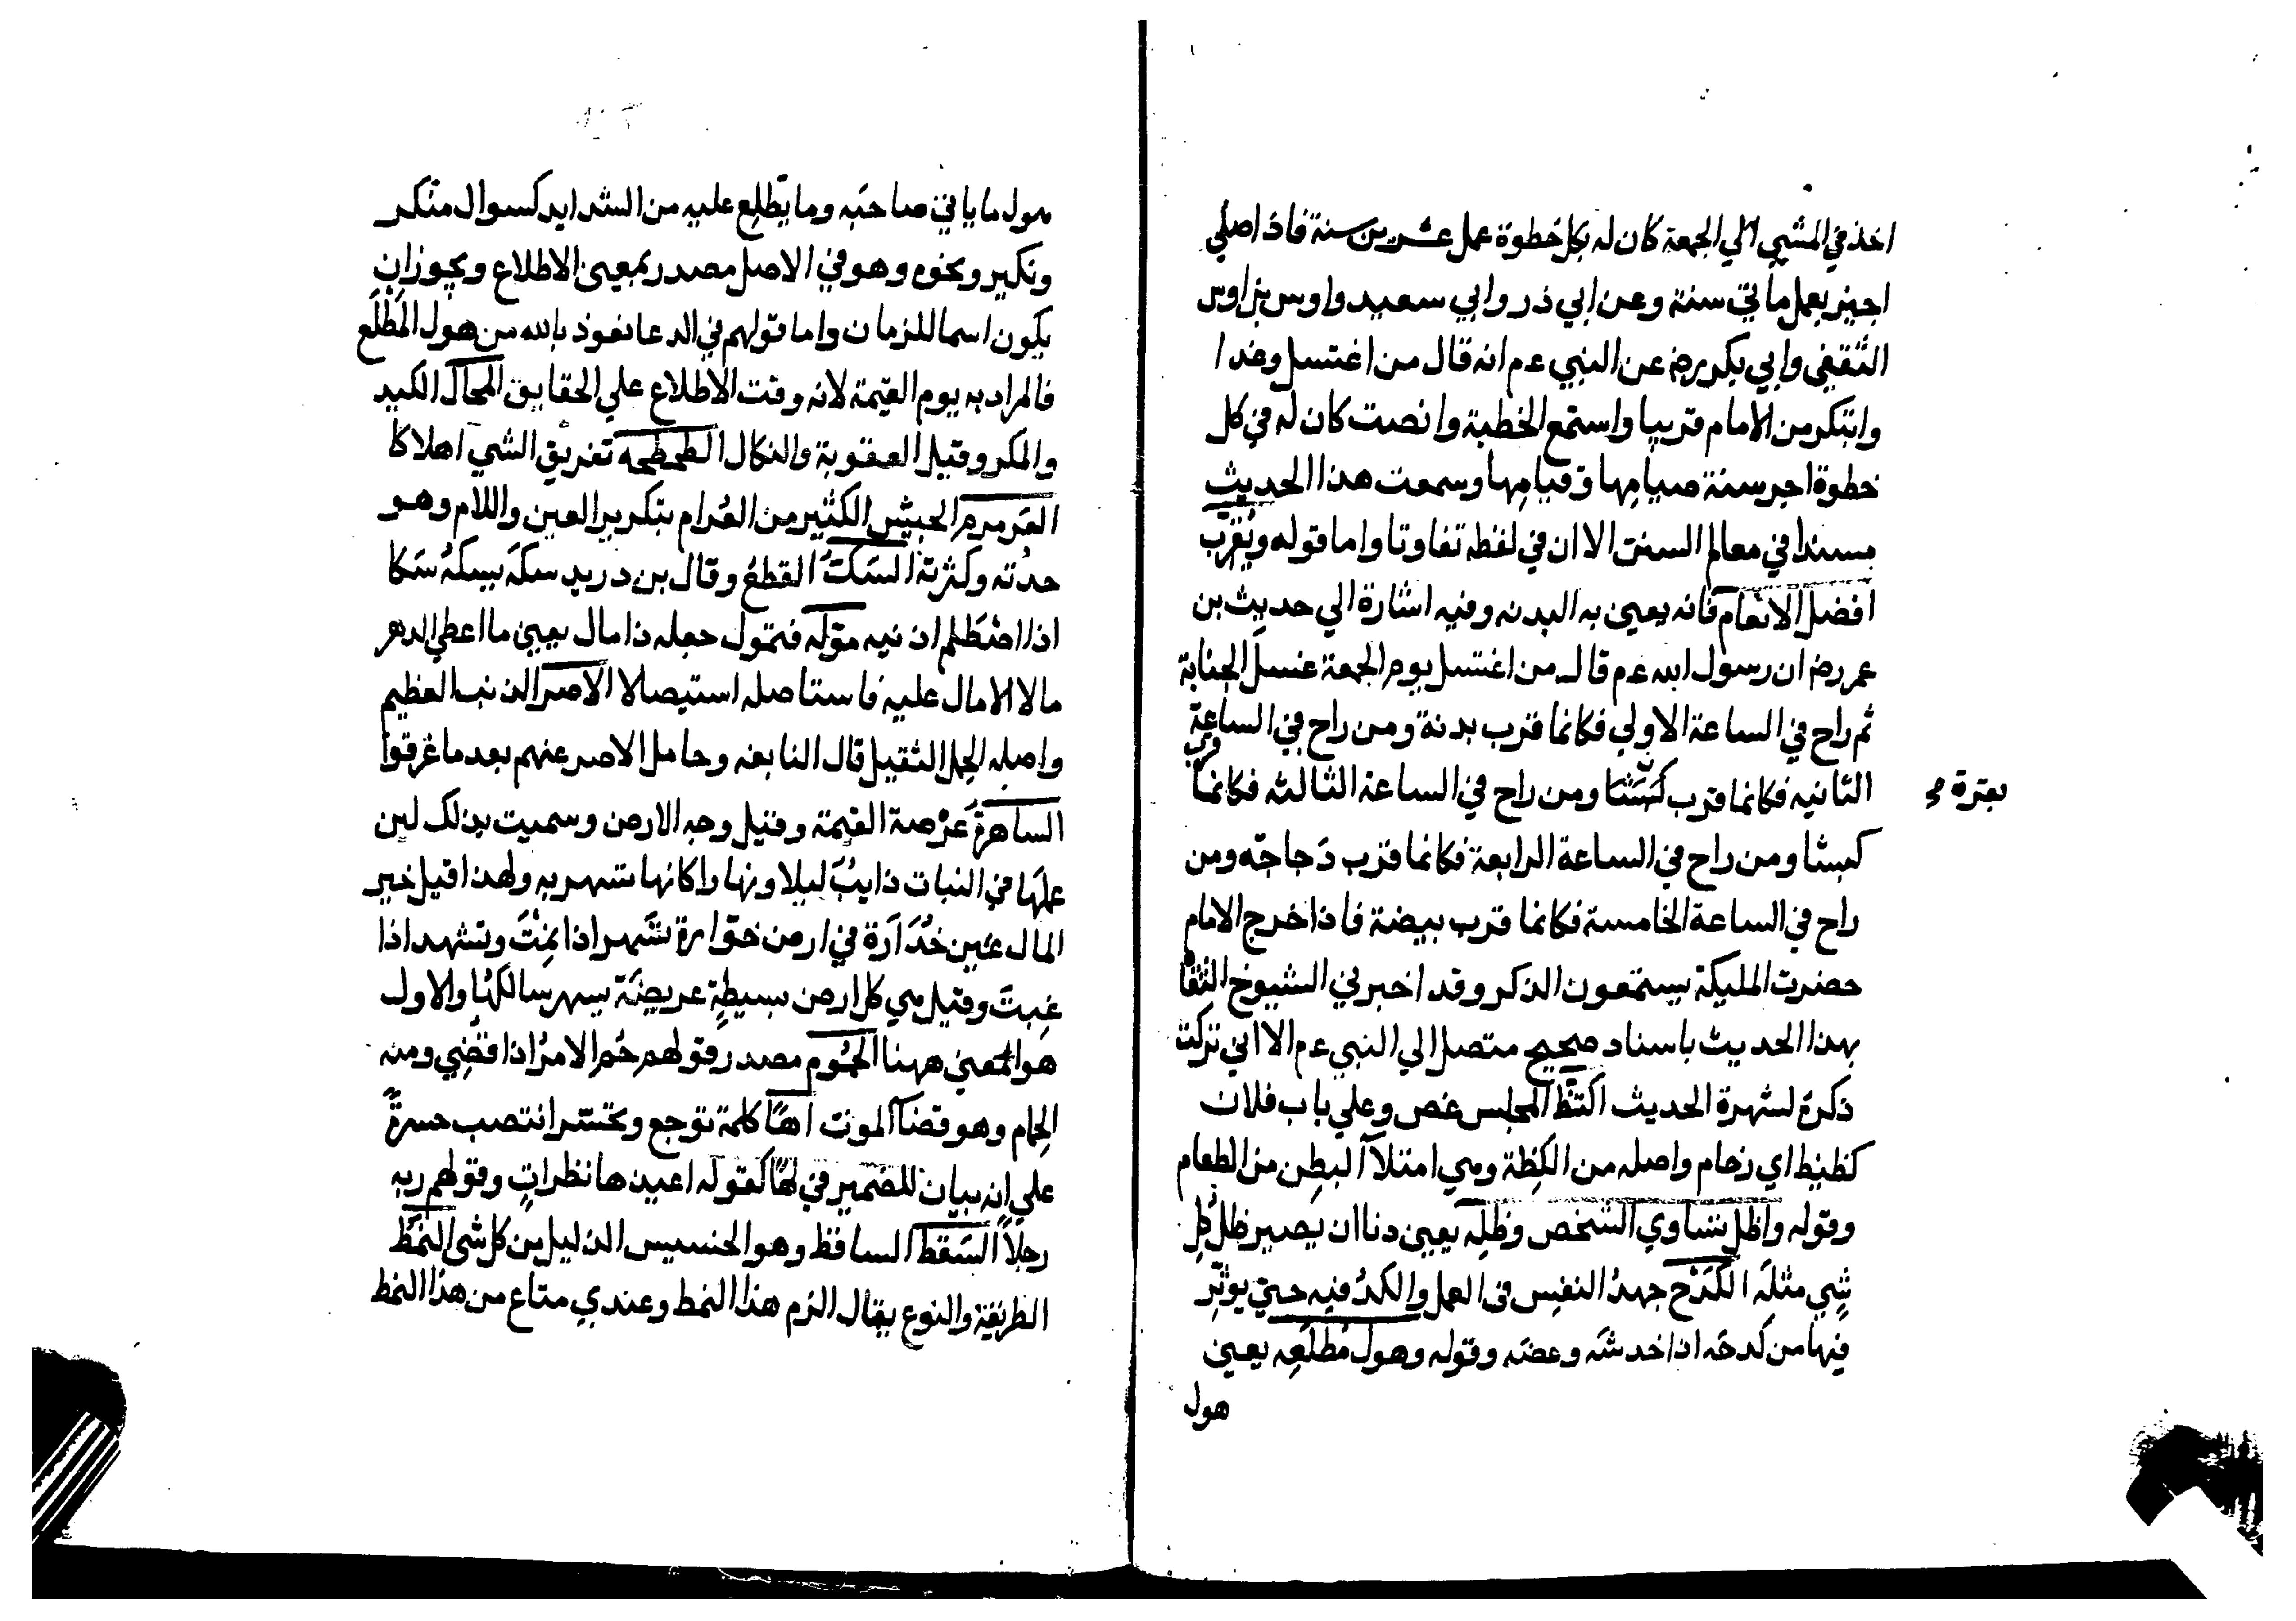 اخذ في المشي الي الجمعة كان له بكل خطوة عمل عشرين سنة فاذا صلي
اجيز بعمل مائتي سنة وعن ابي ذر وابي سعيد واوس بن اوس
الثقفي وابي بكر رضه عن النبي عم انه قال من اغتسل وغدا
وابتكر من الامام قريبا واستمع الخطبة وانصت كان له في كل
خطوة اجر سنة صيامها وقيامها وسمعت هذا الحديث
مسندا في معالم السنن الا ان في لفظه تفاوتا واما قوله ويقرب
افضل الانعام فانه يعني به البدنه وفيه اشارة الي حديث بن
عمر رضه ان رسول الله عم قال من اغتسل يوم الجمعة غسل الجنابة
ثم راح في الساعة الاولي فكانما قرب بدنة ومن راح في الساعة
الثانيه فكانما قرب كبشا ومن راح في الساعة الثالثه فكانما قرب
بقرة
كبشا ومن راح في الساعة الرابعة فكانما قرب دجاجه ومن
راح في الساعة الخامسة فكانما قرب بيضة فاذا خرج الامام
حضرت المليكة يستمعون الذكر وقد اخبرني الشيوخ الثقا
بهذا الحديث باسناد صحيح متصل الي النبي عم الا اني تركت
ذكره لشهرة الحديث اكتظ المجلس غص وعلي باب فلان
كظيظ اي زحام واصله من الكظة وهي امتلآ البطن من الطعام
وقوله واظل تساوي الشخص وظله يعني دنا ان يصير ظل كل
شي مثله الكدح جهد النفس في العمل والكد فيه حتي يوثر
فيها من كدحه اذا خدشه وعضه وقوله وهول مطلعه يعني
هول
هول ما ياتي صاحبه وما يطلع عليه من الشدايد كسوال منكر
ونكير ونحوه وهو في الاصل مصدر بمعني الاطلاع ويجوز ان
يكون اسما للزمان واما قولهم في الدعا نعوذ بالله من هول المطلع
فالمراد به يوم القيمة لانه وقت الاطلاع علي الحقايق المحال الكيد
والمكر وقيل العقوبة والنكال الطحطحه تفريق الشي اهلاكا
العرمرم الجيش الكثير من العرام بتكرير العين واللام وهو
حدته وكثرته السك القطع وقال بن دريد سكه يسكه سكا
اذا اصطلم اذنيه موله فتمول جعله ذا مال يعني ما اعطي الدهر
مالا الا مال عليه فاستاصله استيصالا الاصر الذنب العظيم
واصله الحمل الثقيل قال النابغه وحامل الاصر عنهم بعدما غرقوا
الساهرة عرصة القيمة وقيل وجه الارض وسميت بذلك لين
عملها في النبات دايب ليلا ونهارا كانها تسهر به ولهذا قيل خير
المال عين خرارة في ارض خوارة تسهر اذا نمت وتشهد اذا
غبت وقيل هي كل ارض بسيطة عريضة يسهر سالكها والاول
هو المعني ههنا الحموم مصدر قولهم حم الامر اذا قضي ومنه
الحمام وهو قضآ الموت آها كلمة توجع وتحسر انتصب حسرة
علي انه بيان للضمير في لها كقوله اعيدها نظرات وقولهم ربه
رجلا السقط الساقط وهو الخسيس الذليل من كل شي النمط
الطريقة والنوع يقال الزم هذا النمط وعندي متاع من هذا النمط